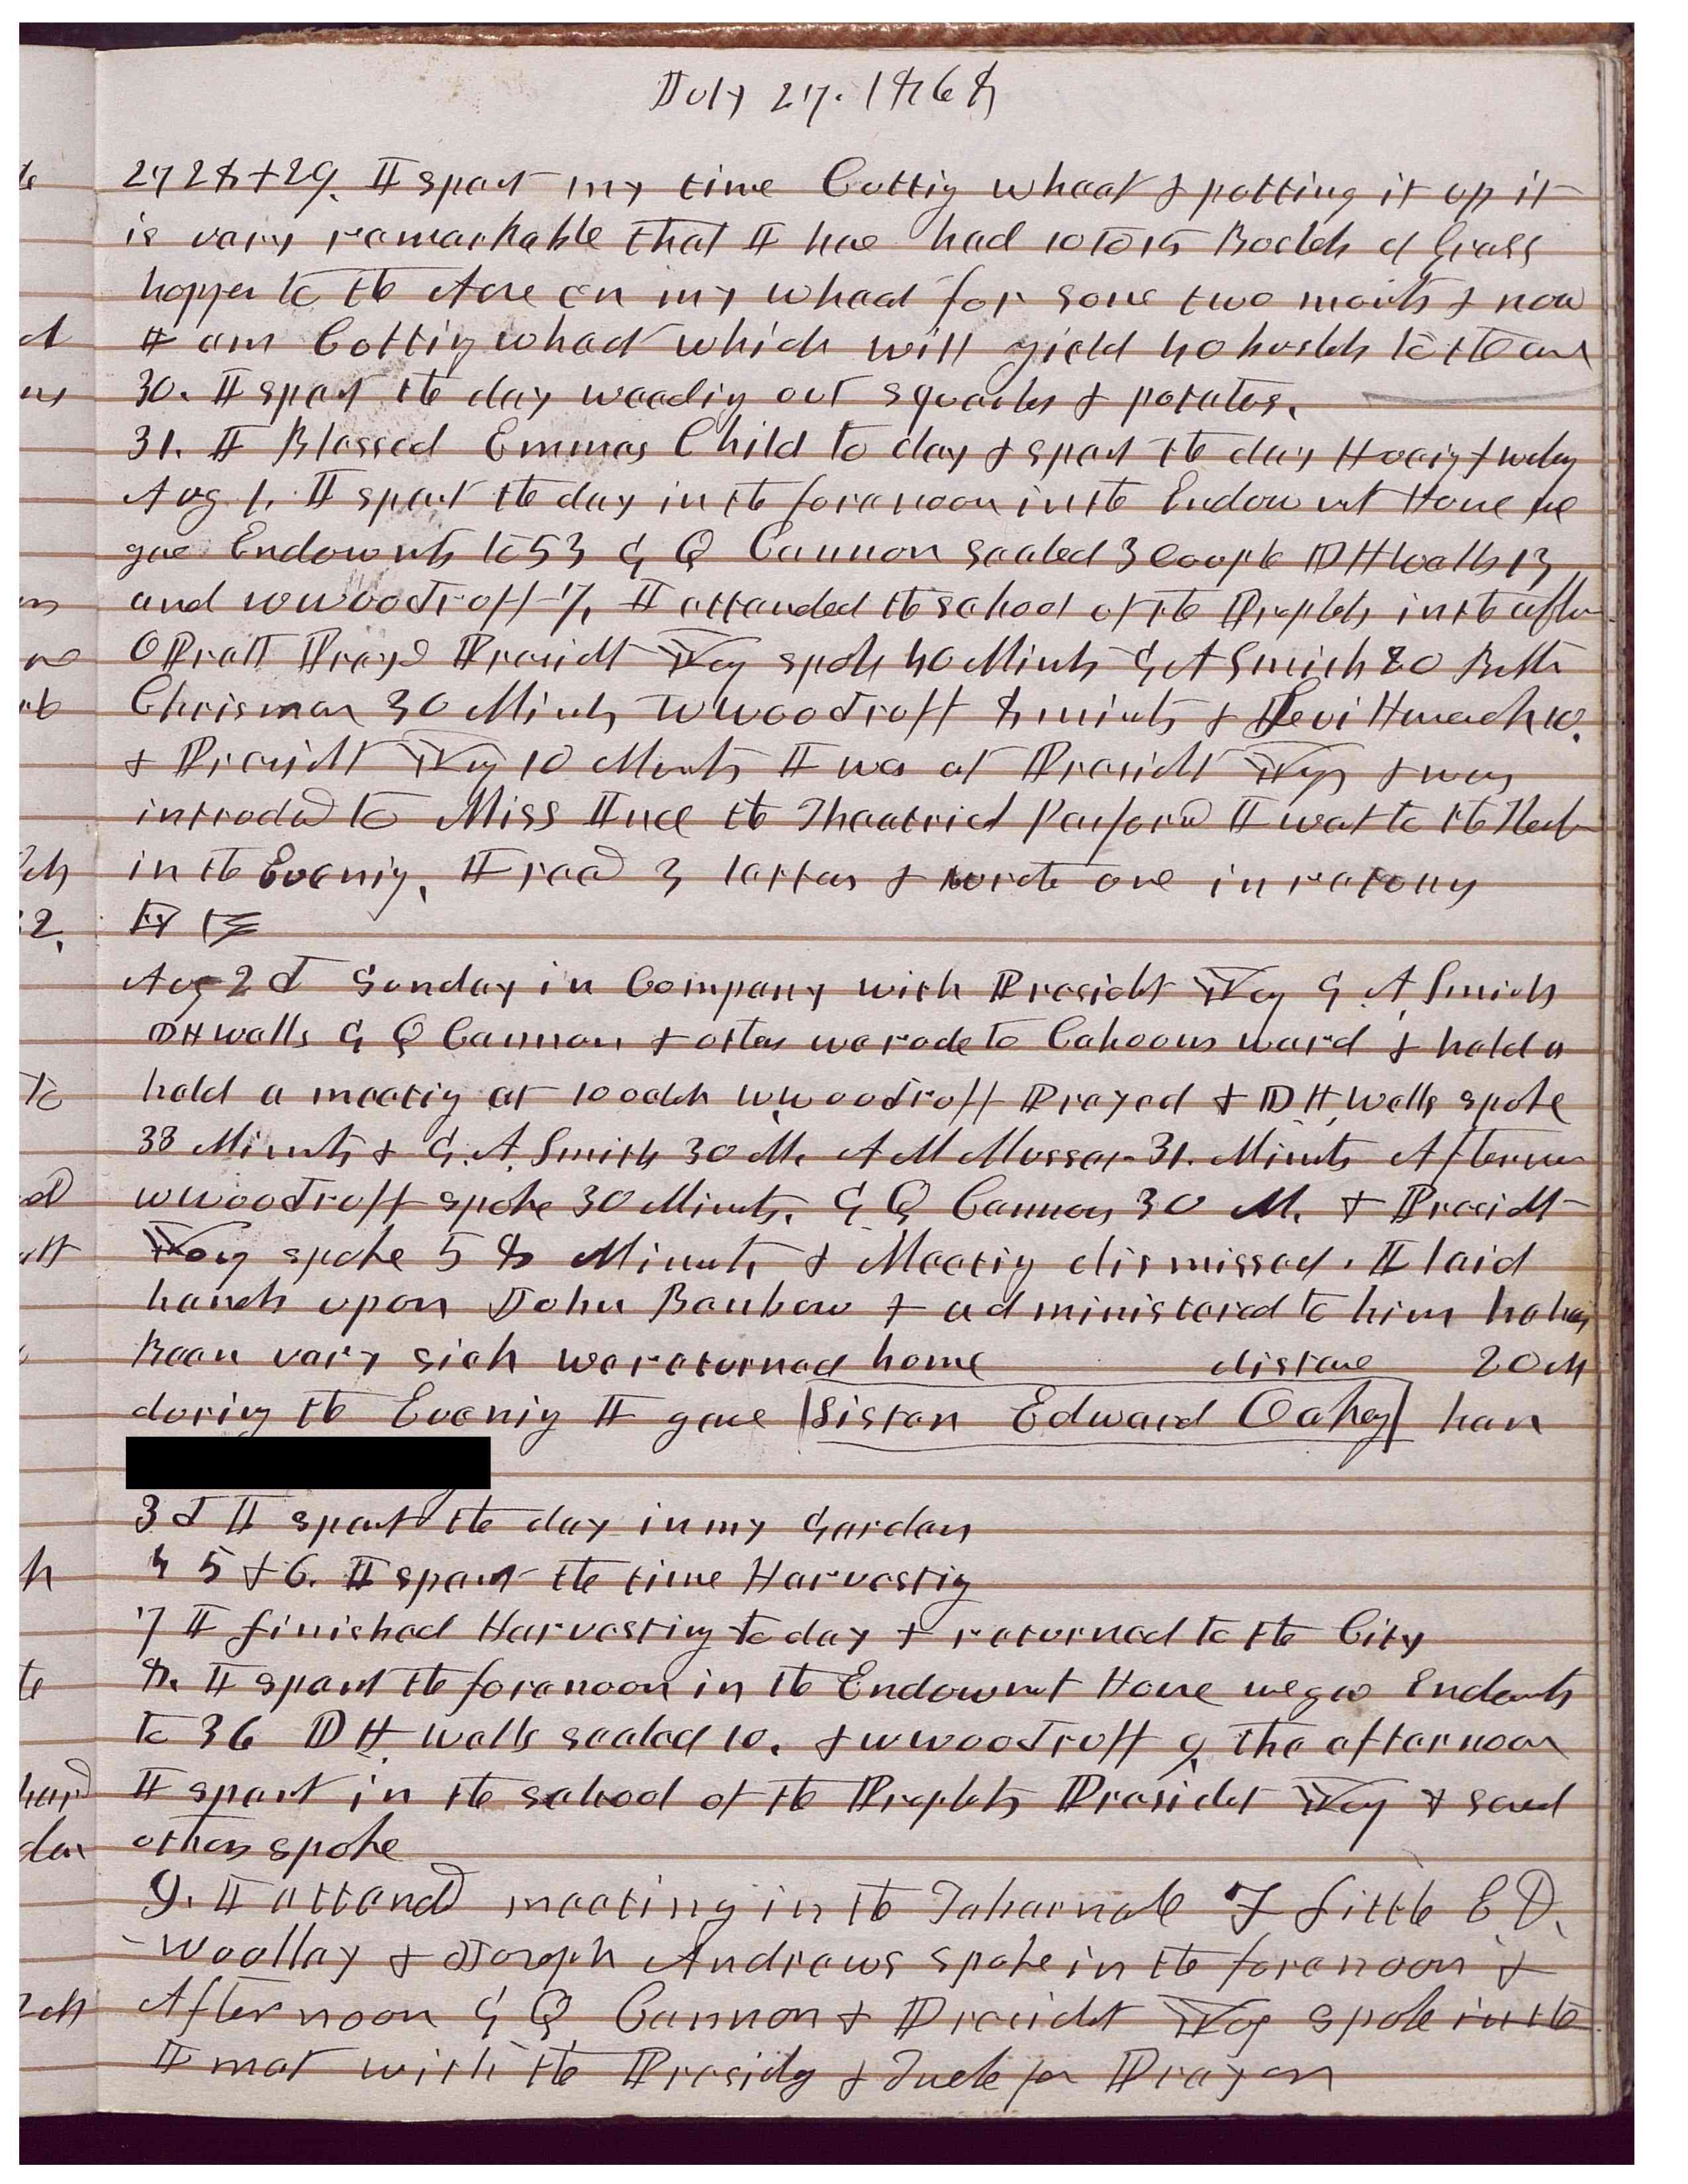 July 27. 1868
27 28 + 29. I spent my time Cutting wheat & putting it up it
is very remarkable that I have had 10 to 15 Bushels of Grass
hopper to the Acre on my wheat for some two months & now
I am Cutting wheat which will yield 40 bushels to the acre
30. I spent the day weeding out squashes & potatoes.
31. I Blessed Emmas Child to day & spent the day Hoeing &
Aug 1. I spent the day in the forenoon in the Endowmt House we
gave Endowmts to 53 G Q Cannon sealed 3 Couple D H Wells 13
and W Woodruff 7, I attended the school of the Prophets in the after
O Pratt Prayd Presidt Young spoke 40 Minuts G A Smith 20 Br
Chrisman 30 Minuts W Woodruff 8 minuts & Levi 10.
& Presidt Young 10 Minuts I was at Presidt Youngs & was
introdud to Miss the Theatricl Perform I went to the
in the Evening. I read 3 letters & wrote one in return
Aug 2d Sunday in Company with Presidt Young G. A Smith
D H Wells G Q Cannon & others we rode to Cahoons ward & held a
held a meeting at 10 oclok W Woodruff Prayed & D H Wells spoke
38 Minuts & G. A. Smith 30 M. A M Musser 31. Minuts Afternoon
W Woodruff spoke 30 Minuts. G Q Cannon 30 M. & Presidt
Young spoke 58 Minuts & Meeting dismissed. I laid
hands upon John Benbow & administered to him he has
Been very sick we returned home distance 20 M
during the Evening I gave Sister Edward Oakey her
3d I spent the day in my Garden
4 5 + 6. I spent the time Harvesting
7 I finished Harvesting to day & returned to the City
8. I spent the forenoon in the Endowmt House we gave Endowmts
to 36 D H Wells sealed 10. & W Woodruff 9 the afternoon
I spent in the school of the Prophets Presidt Young & sevel
others spoke
9. I attend meeting in the Tabernacle F Little E D.
Woolley & Joseph Andrews spoke in the forenoon &
Afternoon G Q Cannon & Presidt Young spoke in the
I met with the Presidy & Twelve for Prayer